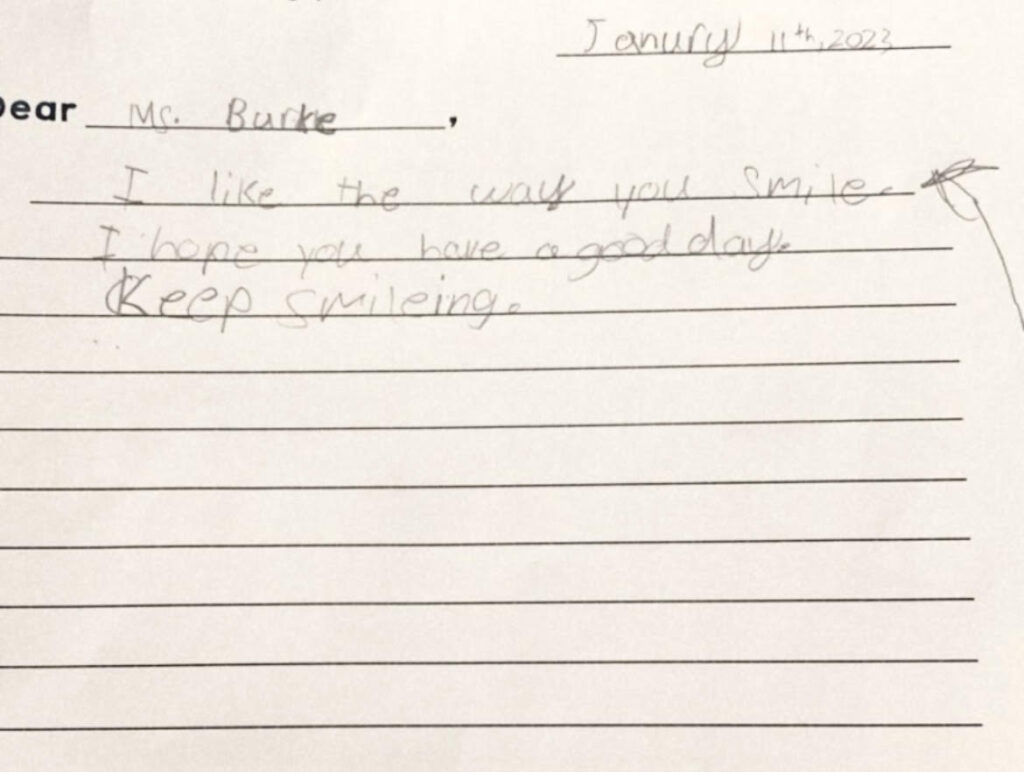 Janury 11th, 2023
Dear Ms. Burke,
I like the way you smile.
I hope you have a good day.
Keep smileing.